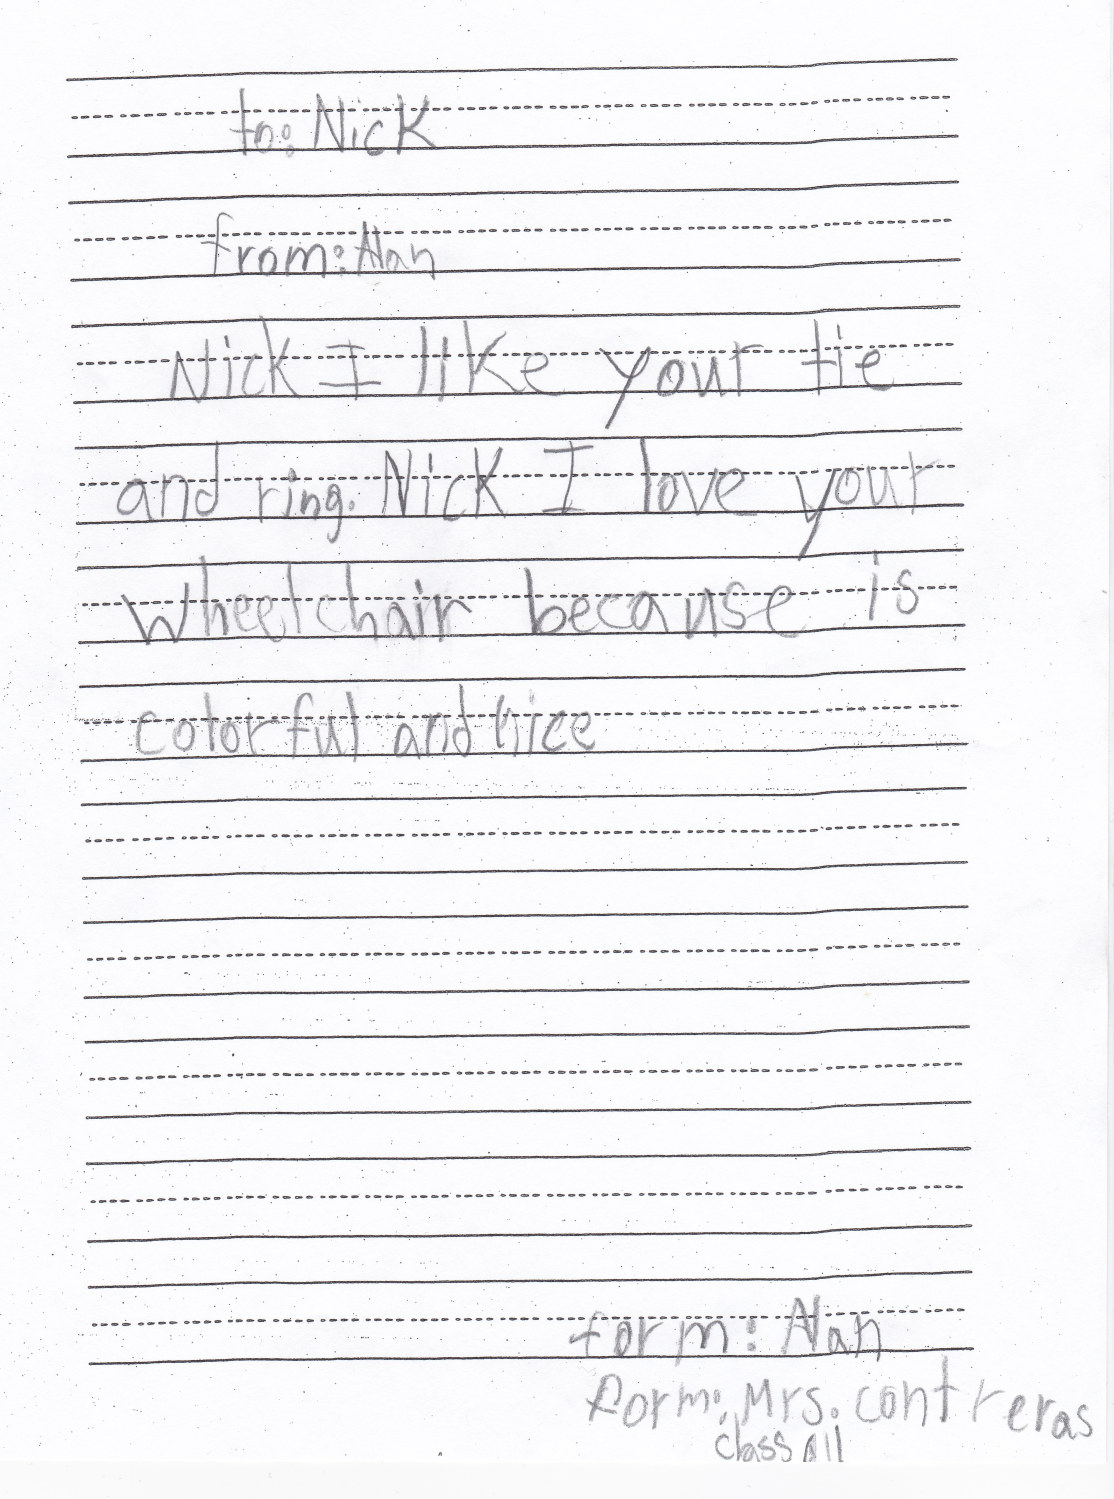 to: Nick
from: Alan
Nick I like your tie
and ring. Nick I love your
wheelchair because is
colorful and nice
form: Alan
form: Mrs. contreras
class